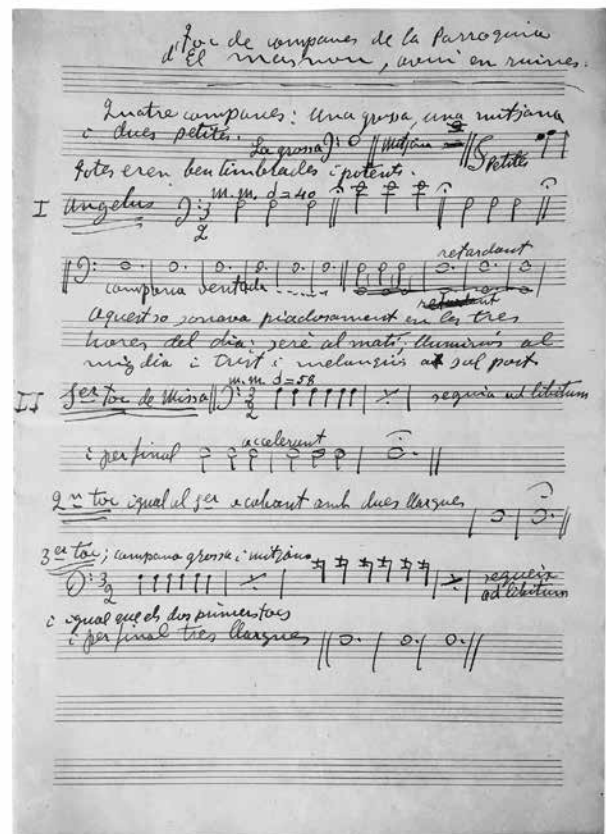 Toc de campanes de la Parroquia
d'El Masnou, avui en ruines.
Quatre campanes: Una grossa, una mitjana
i dues petites. La grossa mitjana Petites
totes eren ben timbrades i potents.
I Angelus m.m. = 40
retardant
campana ventada
retardant
Aquest so sonava piadosament en les tres
hores del dia: serè al matí: lluminós al
mig dia i trist i melangiós al sol post
II 1er toc de Missa m.m. = 58 seguia ad libitum
accelerant
i per final
2n toc igual al 1er acabant amb dues llargues
3er toc; campana grossa i mitjana
segueix
ad libitum
i igual que els dos primers tocs
i per final tres llargues